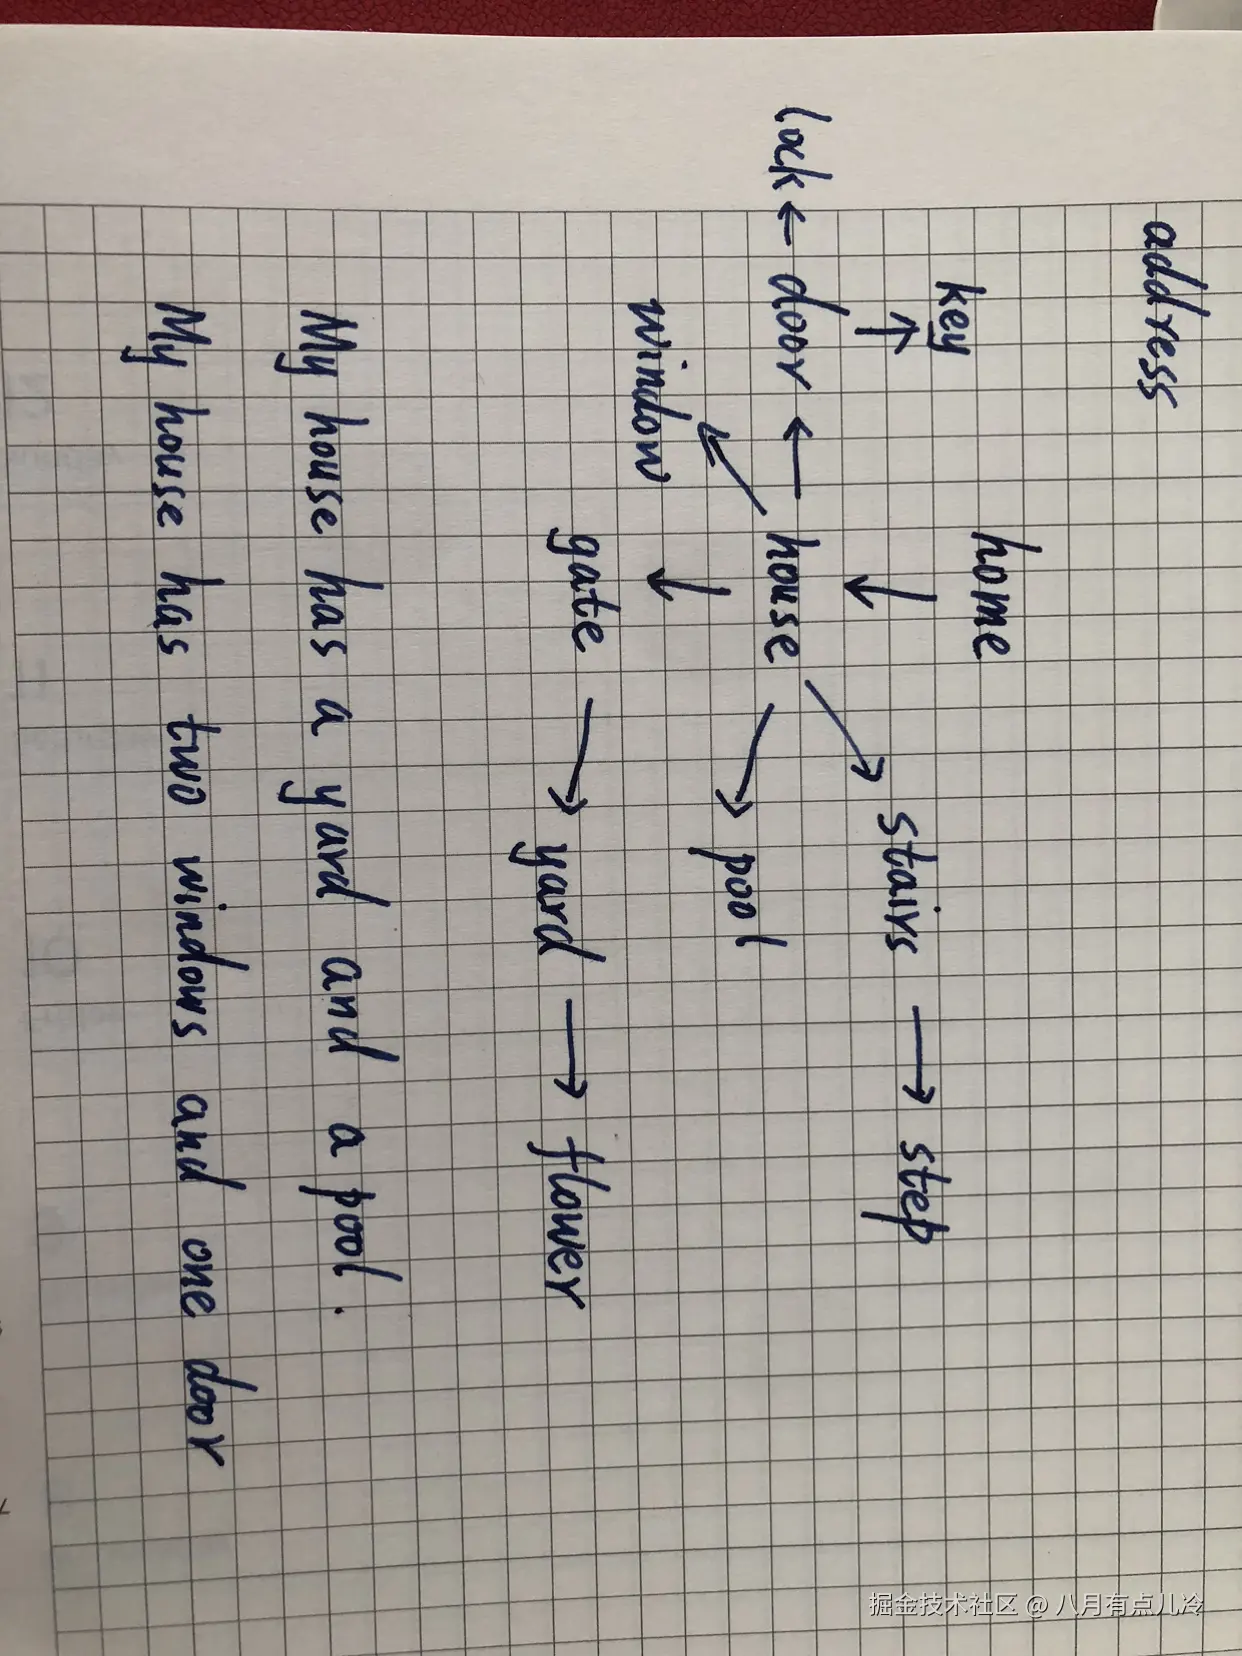 address
home
key
stairs → step
lock ← door ← house
pool
window
gate → yard → flower
My house has a yard and a pool.
My house has two windows and one door
掘金技术社区 @ 八月有点儿冷